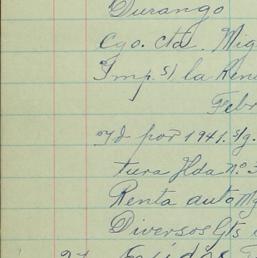 Durango
Cgo. cta. Mig
Imp. s/ la Ren
Febr
Id por 1941. s/g.
tura Hda nº 3
Renta auto Mg
Diversos Gts